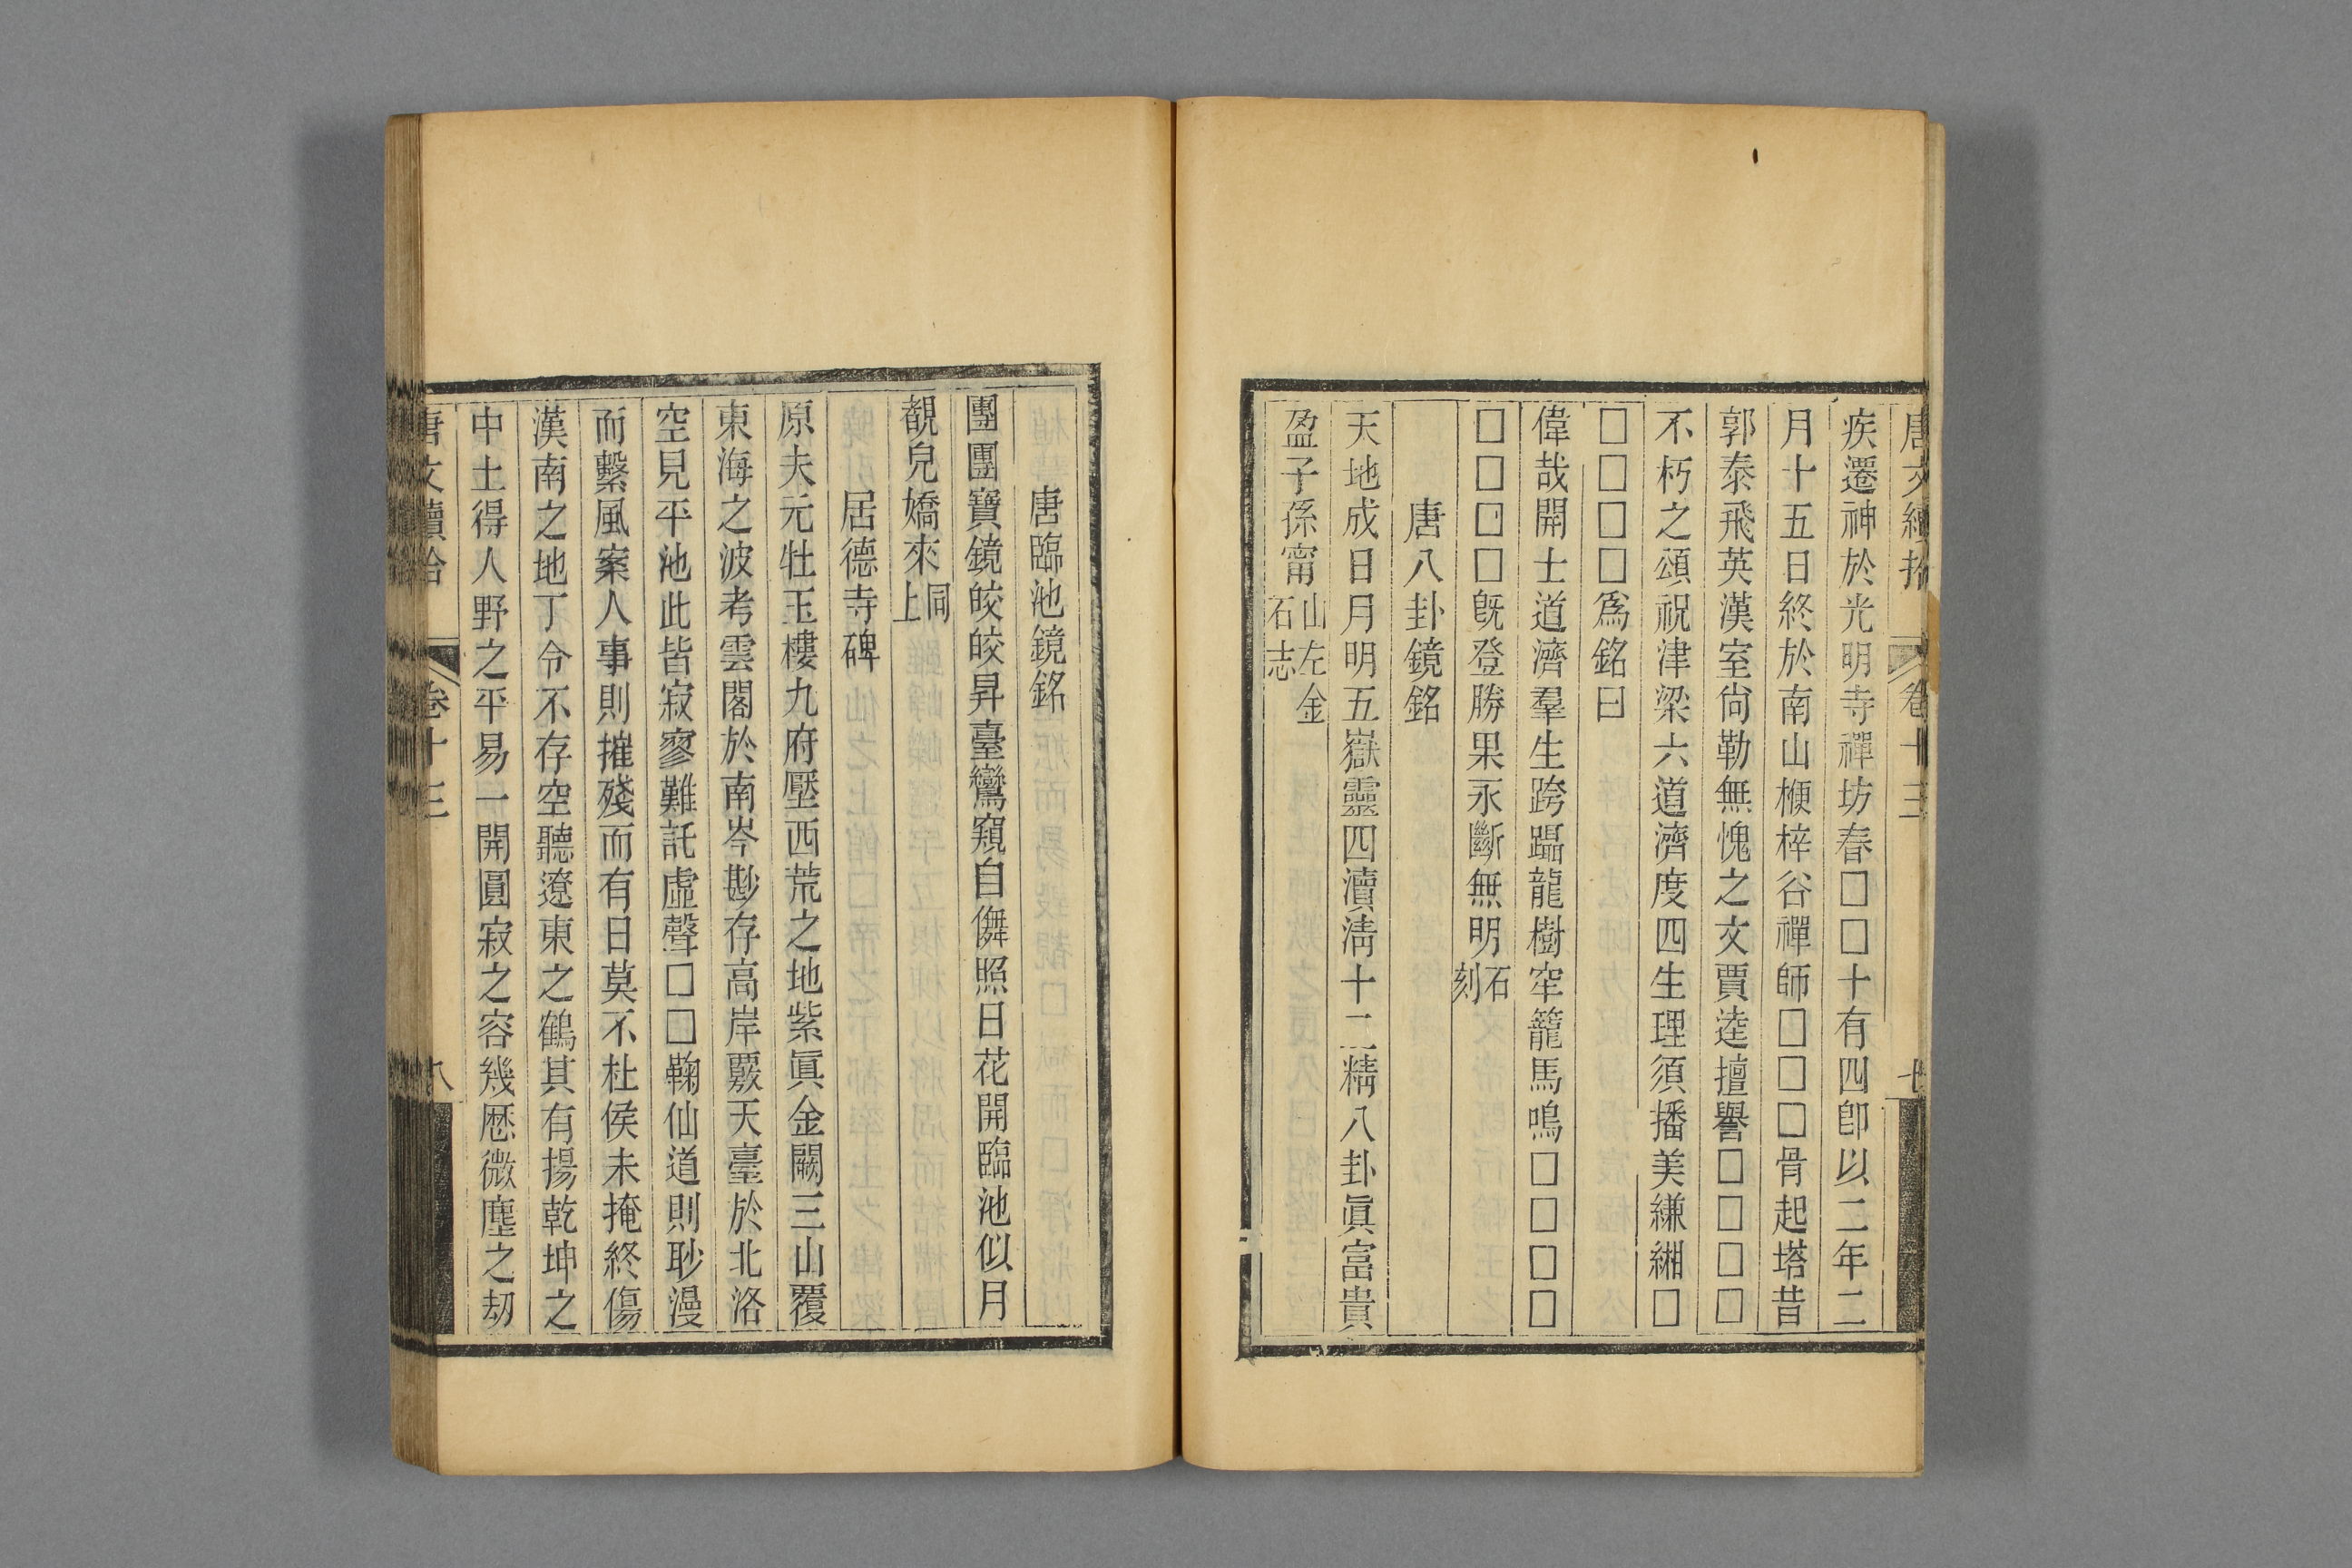 唐文續拾 卷十三 七
疾遷神於光明寺禪坊春□□十有四卽以二年二
月十五日終於南山楩梓谷禪師□□□骨起塔昔
郭泰飛英漢室尙勒無愧之文賈逵擅譽□□□□
不朽之頌祝津梁六道濟度四生理須播美縑緗□
□□□□爲銘曰
偉哉開士道濟羣生跨躡龍樹牢籠馬鳴□□□□
□□□□旣登勝果永斷無明石刻
唐八卦鏡銘
天地成日月明五嶽靈四瀆淸十二精八卦眞富貴
盈子孫甯山左金石志
唐臨池鏡銘
團團寶鏡皎皎昇臺鸞窺自儛照日花開臨池似月
覩皃嬌來同上
居德寺碑
原夫元牡玉樓九府壓西荒之地紫眞金闕三山覆
東海之波考雲閣於南岑尠存高岸覈天臺於北洛
空見平池此皆寂寥難託虛聲□□鞠仙道則眇漫
而繫風案人事則摧殘而有日莫不杜侯未掩終傷
漢南之地丁令不存空聽遼東之鶴其有揚乾坤之
中土得人野之平易一開圓寂之容幾歷微塵之刧
唐文續拾 卷十三 八